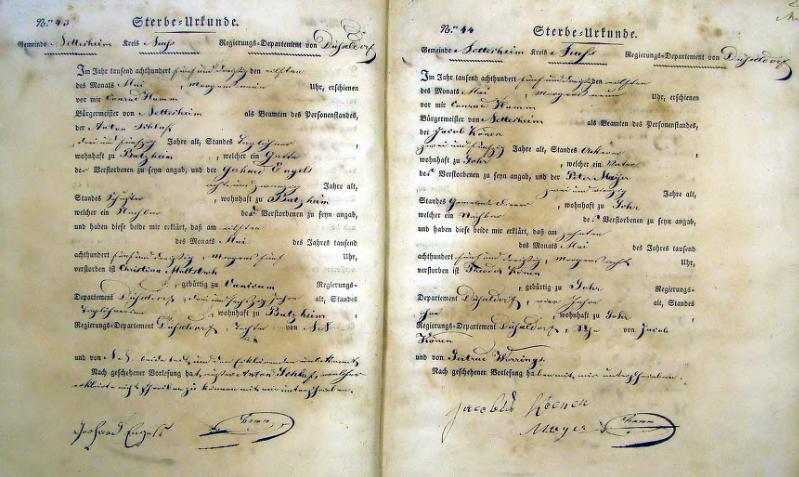 No. 43
Sterbe-Urkunde.
Gemeinde Nettesheim Kreis Neuß Regierungs-Departement von Düsseldorf
Im Jahr tausend achthundert fünf und dreyßig den elften
des Monats Mai, Morgens neun Uhr, erschienen
vor mir Conrad Hamm
Bürgermeister von Nettesheim als Beamten des Personenstandes,
der Anton Schlaß
drei und fünfzig Jahre alt, Standes Taglöhner
wohnhaft zu Butzheim, welcher ein Gatte
des Verstorbenen zu seyn angab, und der Gerhard Engels
acht und zwanzig Jahre alt,
Standes Schuster, wohnhaft zu Butzheim
welcher ein Nachbar des Verstorbenen zu seyn angab,
und haben diese beide mir erklärt, daß am elften
des Monats Mai des Jahres tausend
achthundert fünf und dreißig, Morgens fünf Uhr,
verstorben ist Christina
, gebürtig zu Regierungs-
Departement Düsseldorf, drei und sechszig Jahre alt, Standes
Taglöhnerin, wohnhaft zu Butzheim
Regierungs-Departement Düsseldorf, Tochter von N.N.
und von N.N. beide todt, und den Erklärenden unbekannt.
Nach geschehener Vorlesung hat, außer Anton Schlaß, welcher
erklärte nicht schreiben zu können mit mir unterschrieben.
Gerhard Engels Hamm
No. 44
Sterbe-Urkunde.
Gemeinde Nettesheim Kreis Neuß Regierungs-Departement von Düsseldorf
Im Jahr tausend achthundert fünf und dreyßig den elften
des Monats Mai, Morgens neun Uhr, erschienen
vor mir Conrad Hamm
Bürgermeister von Nettesheim als Beamten des Personenstandes,
der Jacob Könen
zwei und fünfzig Jahre alt, Standes Ackerer
wohnhaft zu Gohr, welcher ein Vater
des Verstorbenen zu seyn angab, und der Peter Mayer
zwei und vierzig Jahre alt,
Standes Gemeindediener, wohnhaft zu Gohr
welcher ein Nachbar des Verstorbenen zu seyn angab,
und haben diese beide mir erklärt, daß am zehnten
des Monats Mai des Jahres tausend
achthundert fünf und dreißig, Morgens acht Uhr,
verstorben ist Theodor Könen
, gebürtig zu Gohr Regierungs-
Departement Düsseldorf, vier Jahre alt, Standes
ohne, wohnhaft zu Gohr
Regierungs-Departement Düsseldorf, Sohn von Jacob
Könen
und von Gertrud Worrings.
Nach geschehener Vorlesung haben mit mir unterschrieben.
Jacobus Koenen
Mayer Hamm